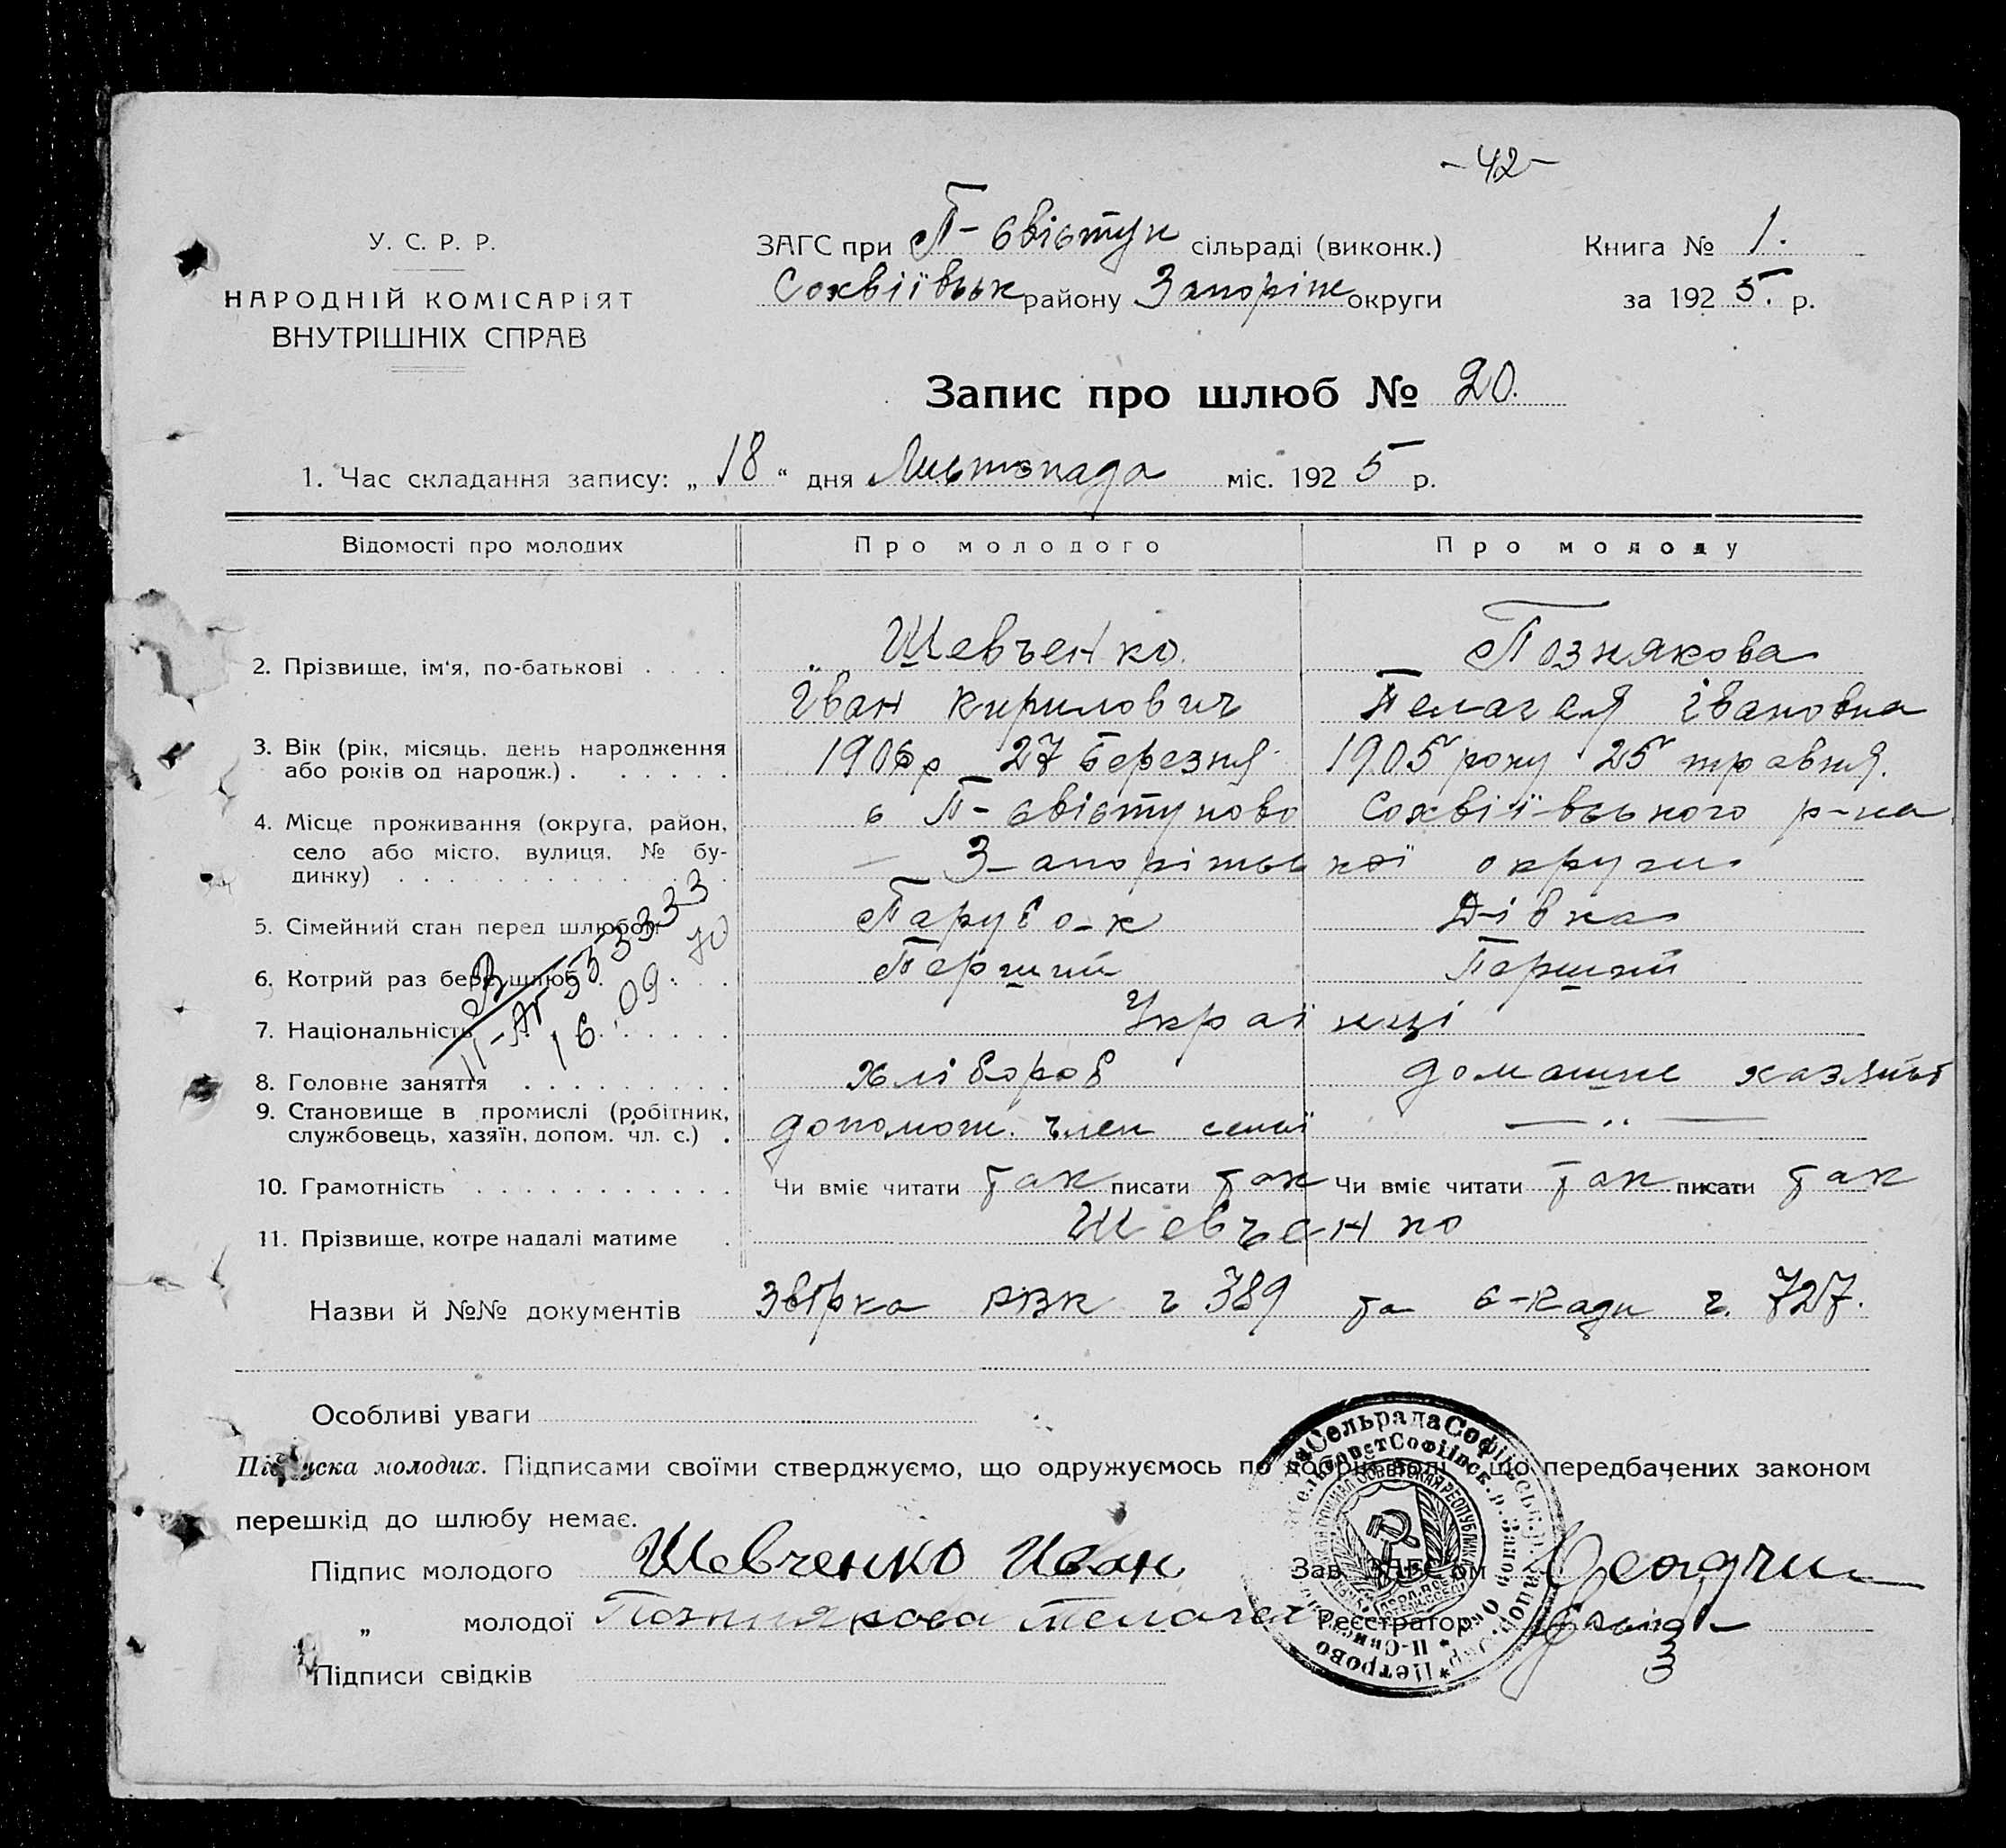 -42-
У. С. Р. Р.
НАРОДНІЙ КОМІСАРІЯТ
ВНУТРІШНІХ СПРАВ
ЗАГС при П-Свістун сільраді (виконк.)
Сохвіївськ району Запоріж округи
Книга № 1.
за 1925. р.
Запис про шлюб № 20.
1. Час складання запису: „18“ дня Листопада міс. 1925 р.
Відомості про молодих Про молодого Про молоду
2. Прізвище, ім'я, по-батькові . . . . Шевченко Познякова
Іван Кирилович Пелагея Івановна
3. Вік (рік, місяць, день народження або років од народж.) . . . . . . 1906 р 27 березня 1905 року 25 травня.
4. Місце проживання (округа, район, село або місто, вулиця, № будинку) с П-Свістуново Сохвіївського р-на
Запоріжської округи
5. Сімейний стан перед шлюбом Парубок Дівка
6. Котрий раз бере шлюб . . . Перший Перший
7. Національність . . . . . . Українці
8. Головне заняття . . . . . . . . . хлібороб домашнє
9. Становище в промислі (робітник, службовець, хазяїн, допом. чл. с.) . допомож. член семї — „ —
10. Грамотність . . . . . . . . . . . Чи вміє читати так писати так Чи вміє читати так писати так
11. Прізвище, котре надалі матиме . Шевченко
II-АП 333333
16.09.70
Назви й №№ документів Звірка РВК ч 389 та с-Ради ч. 727.
Особливі уваги
Підписка молодих. Підписами своїми стверджуємо, що одружуємось по добрій волі і що передбачених законом
перешкід до шлюбу немає.
Підпис молодого Шевченко Иван Зав. ЗАГС'ом
„ молодої Познякова Пелагея Реєстратор
Підписи свідків